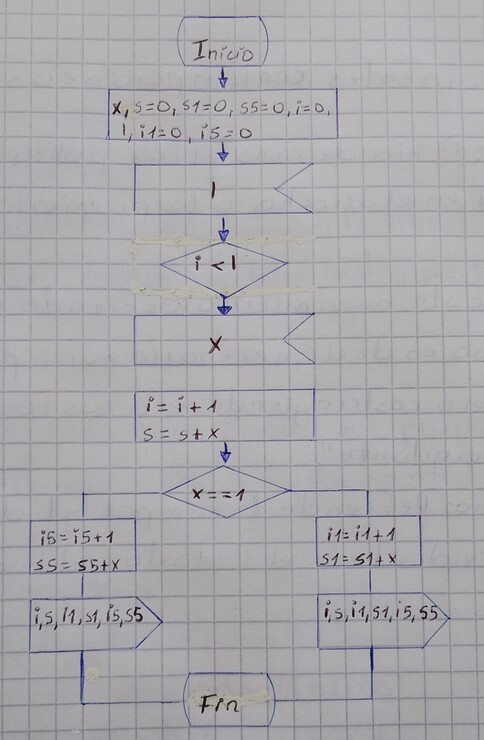 Inicio
x, s=0, s1=0, s5=0, i=0,
l, i1=0, i5=0
l
i < l
x
i = i + 1
s = s + x
x == 1
i5 = i5 + 1
s5 = s5 + x
i1 = i1 + 1
s1 = s1 + x
i, s, i1, s1, i5, s5
i, s, i1, s1, i5, s5
Fin